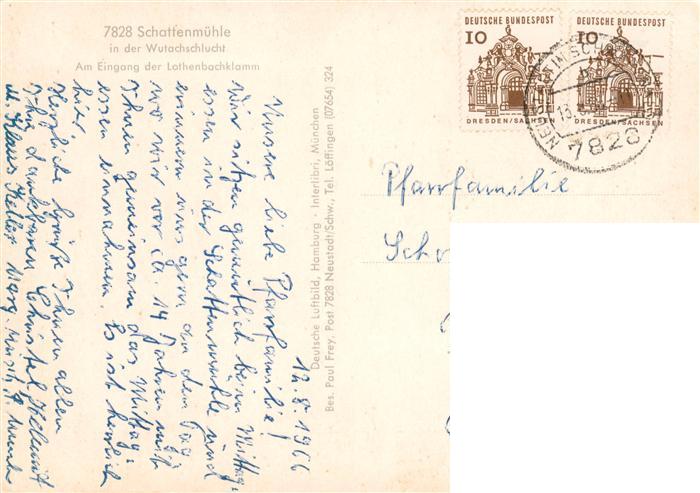 7828 Schattenmühle
in der Wutachschlucht
Am Eingang der Lothenbachklamm
DEUTSCHE BUNDESPOST
10
DRESDEN/SACHSEN
DEUTSCHE BUNDESPOST
10
DRESDEN/SACHSEN
7828
Deutsche Luftbild, Hamburg · Interlibri, München
Bes. Paul Frey, Post 7828 Neustadt/Schw., Tel. Löffingen (07654) 324
12.8.1966
Unsere liebe Pfarrfamilie!
Wir sitzen gemütlich beim Mittag-
essen in der Schattenmühle und
erinnern uns gern an den Tag
wo wir vor ca. 14 Jahren mit
Ihnen gemeinsam das Mittag-
essen einnahmen. Es ist herrlich
hier.
Herzliche Grüße Ihnen allen
Ihre dankbaren Christel, Helmut
u. Klaus Keller
Pfarrfamilie
Scho